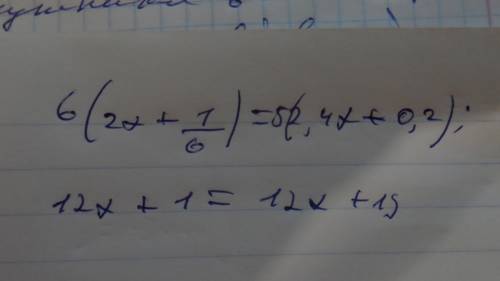 6(2x + 1/6) = 5(2,4x + 0,2);
12x + 1 = 12x + 1;